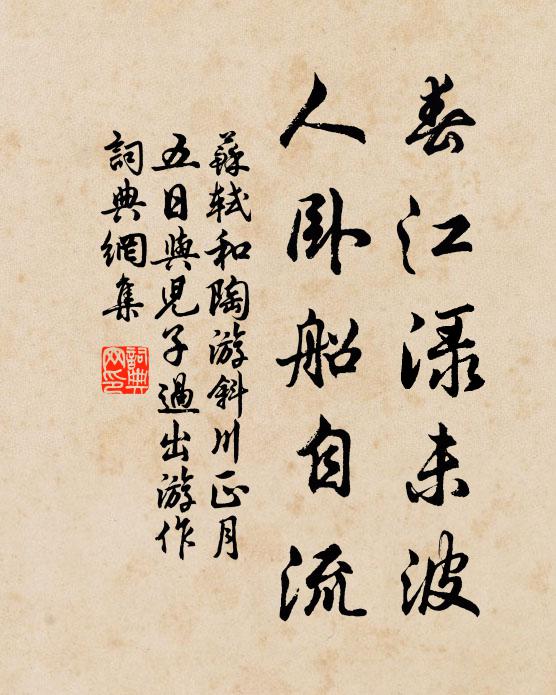 春江渌未波
人卧船自流
蘇軾和陶游斜川正月
五日與兒子過出游作
詞典網集
詞典
网印